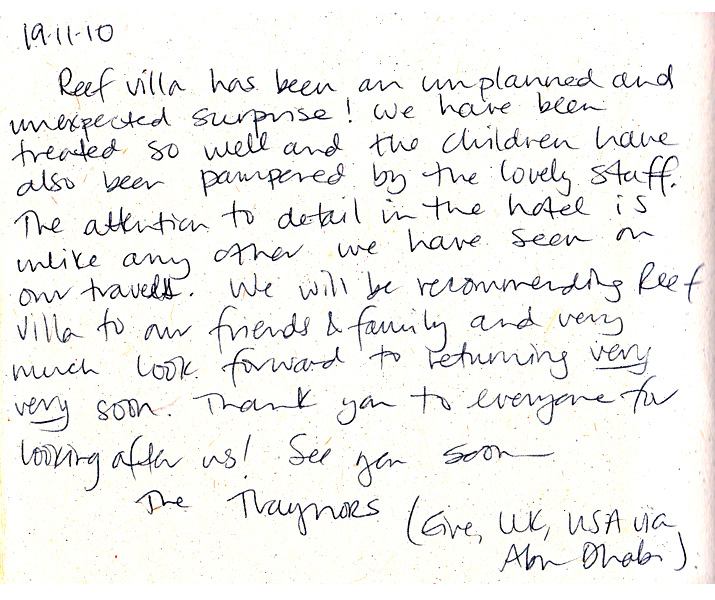 19.11.10
Reef villa has been an unplanned and
unexpected surprise! We have been
treated so well and the children have
also been pampered by the lovely staff.
The attention to detail in the hotel is
unlike any other we have seen on
our travels. We will be recommending Reef
Villa to our friends & family and very
much look forward to returning very
very soon. Thank you to everyone for
looking after us! See you soon
The Traynors
(Eire, UK, USA via
Abu Dhabi).